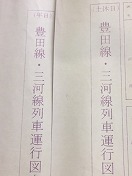 (土休日)
豊田線・三河線列車運行図
(平日)
豊田線・三河線列車運行図